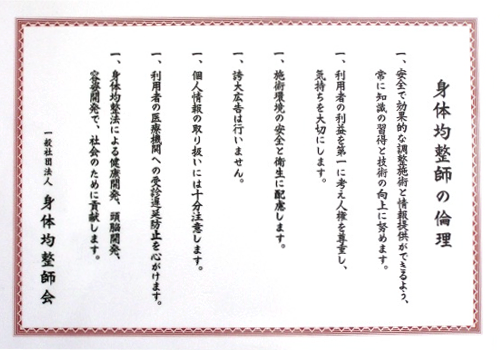 身体均整師の倫理
一、安全で効果的な調整施術と情報提供ができるよう、
常に知識の習得と技術の向上に努めます。
一、利用者の利益を第一に考え人権を尊重し、
気持ちを大切にします。
一、施術環境の安全と衛生に配慮します。
一、誇大広告は行いません。
一、個人情報の取り扱いには十分注意します。
一、利用者の医療機関への受診遅延防止を心がけます。
一、身体均整法による健康開発、頭脳開発、
容姿開発で、社会のために貢献します。
一般社団法人 身体均整師会